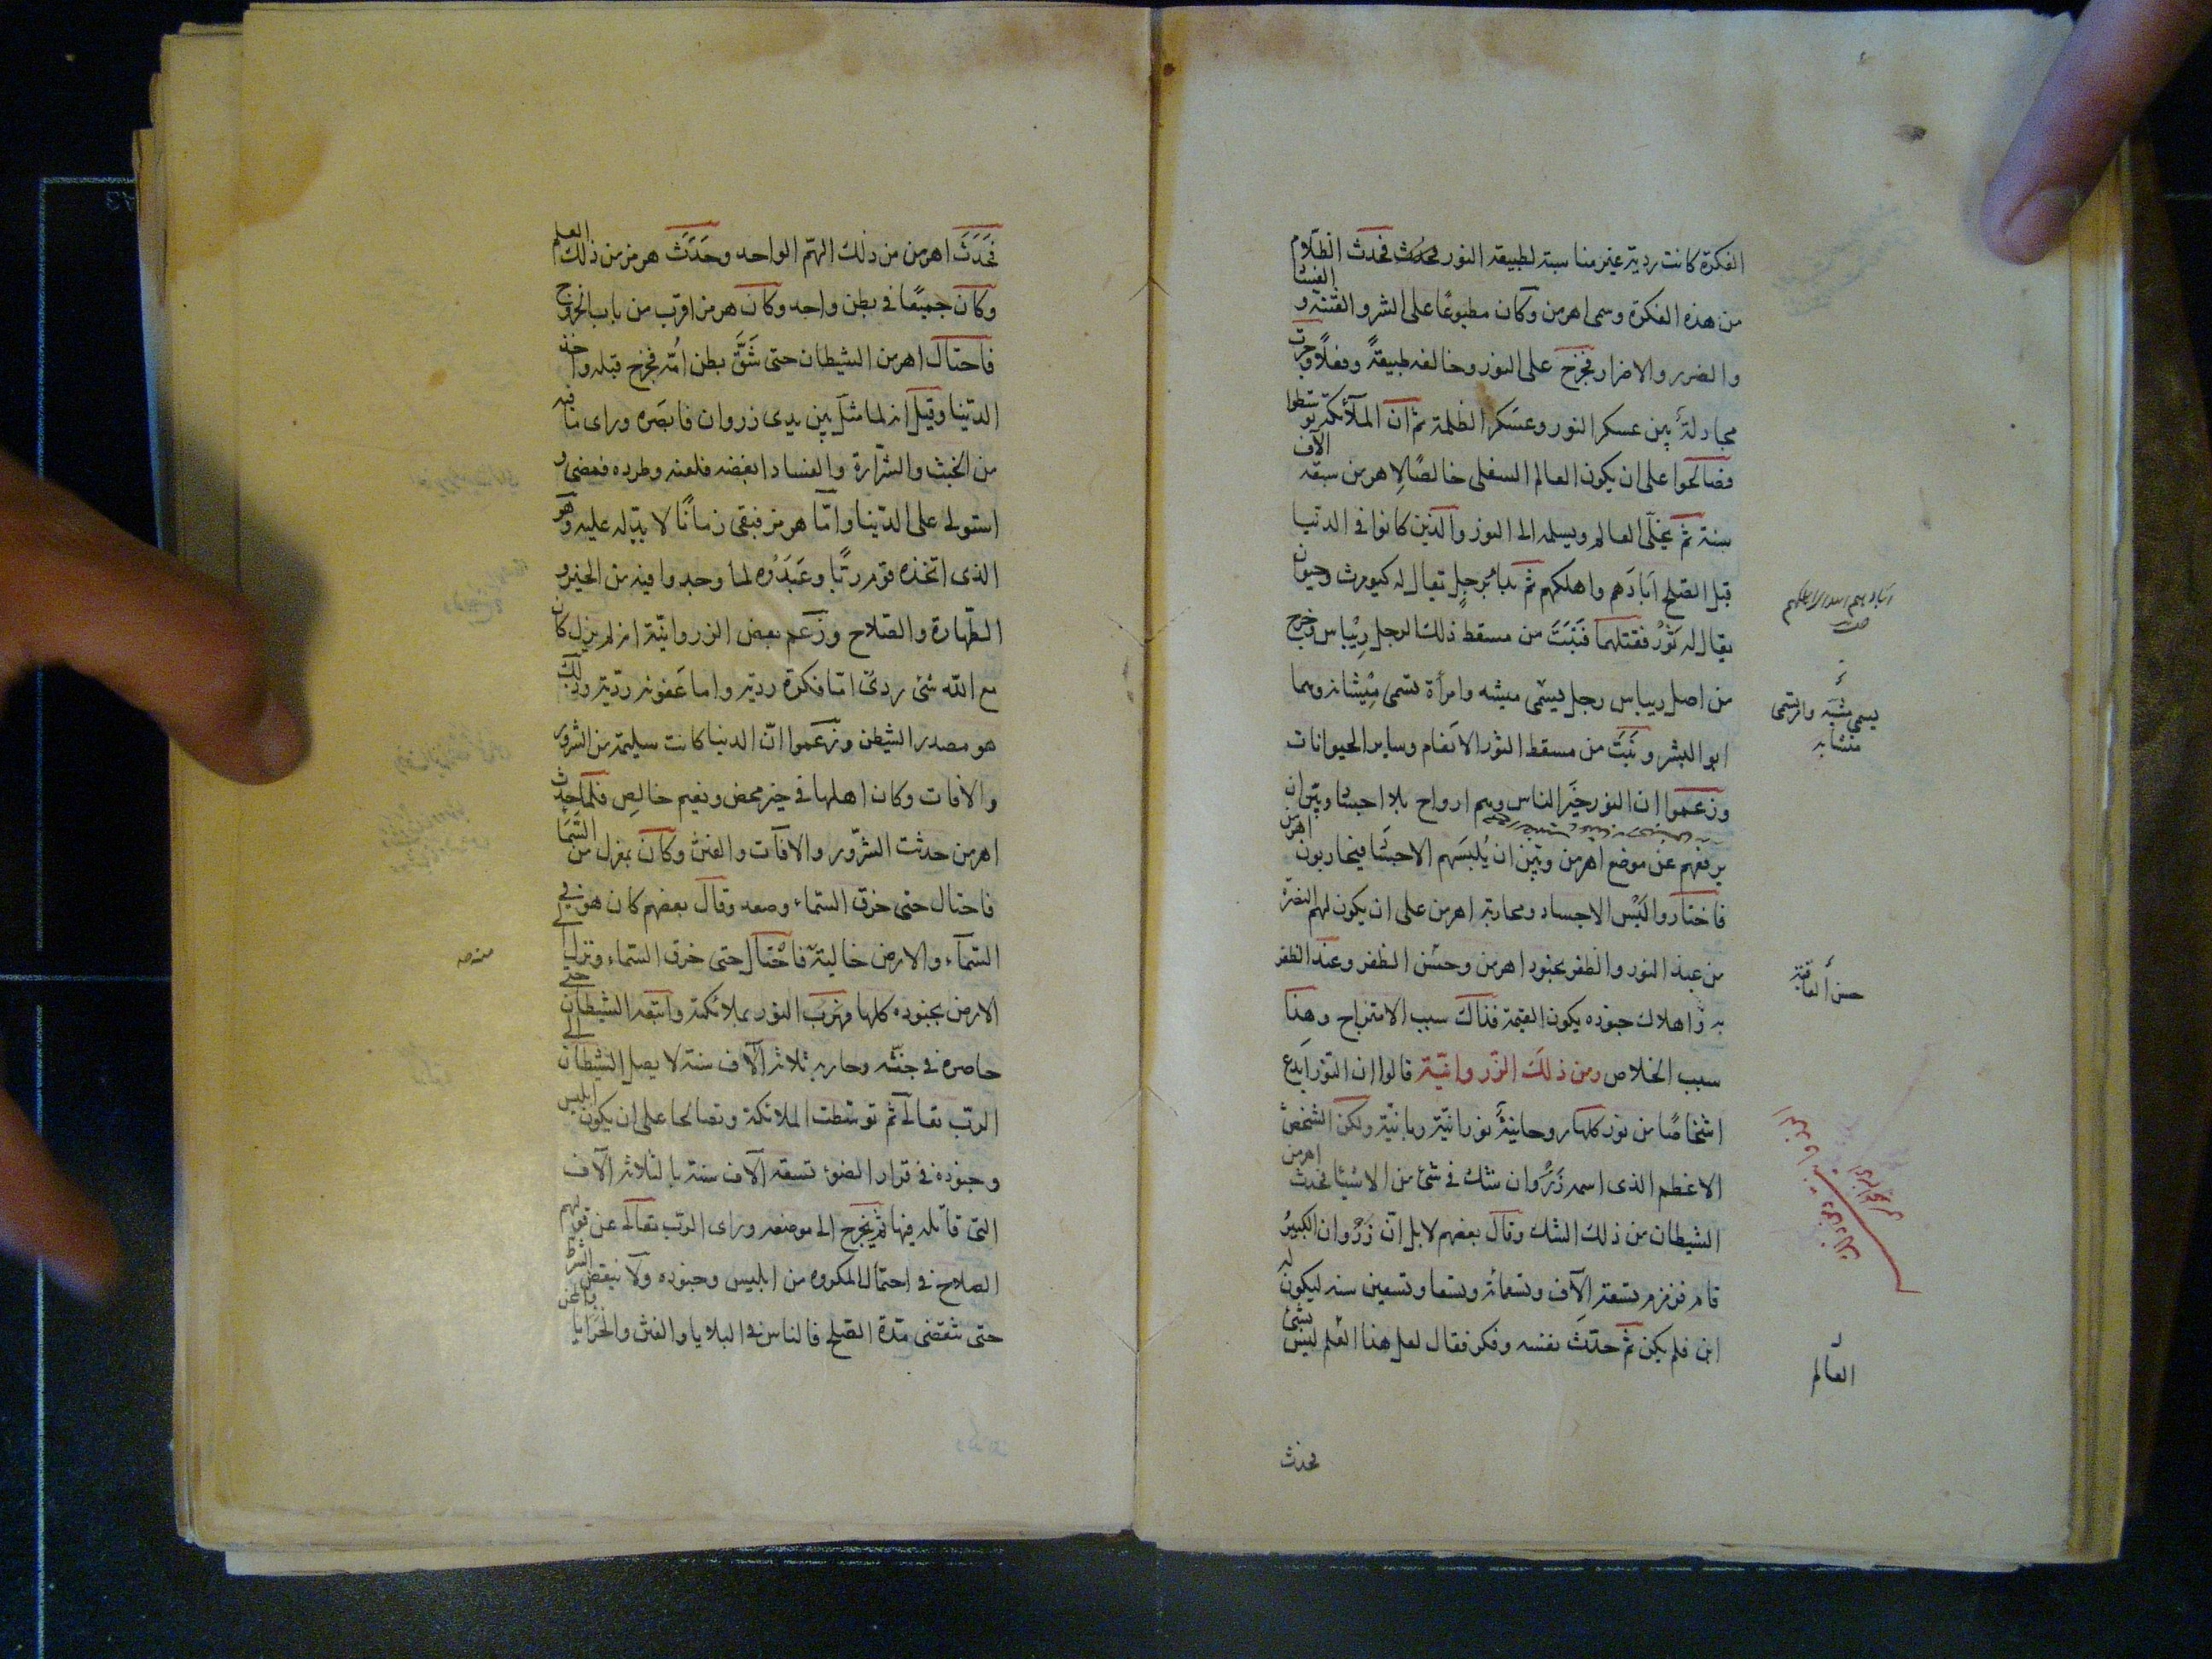 الفكرة كانت ردية غير مناسبة لطبيعة النور فحدث الظلام
من هذه الفكرة وسمى اهرمن وكان مطبوعًا على الشر والفتنة والفساد
والضرر والاضرار فخرج على النور وخالفه طبيعةً وفعلًا وجرت
محاربةٌ بين عسكر النور وعسكر الظلمة ثم ان الملآئكة توسطوا
فصالحوا على ان يكون العالم السفلى خالصًا لاهرمن سبعة الآف
سنة ثم يخلّى العالم ويسلمه الى النور والذين كانوا فى الدنيا
قبل الصلح اَبادَهم واهلكهم ثم بدأ برجلٍ يقال له كيومرث وحيوان
يقال له ثَوْرٌ فقتلهما فَنَبَتَ من مسقط ذلك الرجل رِيْباس وخرج
من اصل ريباس رجل يسمّى ميشه وامرأة تسمى مِيْشانه وهما
ابو البشر ونَبَتَ من مسقط الثور الانعام وساير الحيوانات
وزعموا ان النور خيّر الناس وهم ارواح بلا اجساد وبين ان
يرفعهم عن موضع اهرمن وبين ان يُلبسَهم الاجساد فيحاربون اهرمن
فاختاروا لَبْس الاجساد ومحاربة اهرمن على ان يكون لهم النصرة
من عند النور والظفر بجنود اهرمن وحسْن الظفر وعند الظفر
به واهلاك جنوده يكون القيمة فذاك سبب الامتزاج وهذا
سبب الخلاص ومن ذلك الزروانيّة قالوا ان النّور اَبدع
اشخاصًا من نور كلها روحانيّةً نورانيّة ربانيّة ولكن الشخص
الاعظم الذى اسمه زَرْوان شك فى شئ من الاشيا فحدث اهرمن
الشيطان من ذلك الشك وقال بعضهم لا بل انّ زَرْوان الكبيرُ
قام فزمزم تسعة الآف وتسعمائة وتسعا وتسعين سنه ليكون له
ابن فلم يكن ثم حدّث نفسه وفكر فقال لعل هذا العلم ليس بشئ
فحدث
ابادهم
يسمى ميشه وامرأة تسمى
ميشانه
حسن العاقبة
العالم
فحَدَثَ اهرمن من ذلك الهمّ الواحد وحَدَثَ هرمز من ذلك العلم
وكان جميعًا فى بطن واحد وكان هرمز اقرب من باب الخروج
فاحتال اهرمن الشيطان حتى شَقَّ بطن امّه فخرج قبله واخذ
الدّنيا وقيل انه لما مثل بين يدى زروان فابصَره وراى ما فيه
من الخبث والشّرارة والفساد ابغضه فلعنه وطرده فمضى و
استولى على الدّنيا وامّا هرمز فبقى زمانًا لا يدَ له عليه وهو
الذى اتخذه قوم ربًّا وعَبَدُوه لما وجدوا فيه من الخير و
الطّهارة والصّلاح وزَعم بعض الزروانيّة انه لم يزل كان
مع الله شئ ردىّ امّا فكرة ردية واما عَفونه رديّة وذلك
هو مصدر الشيطن وزَعموا انّ الدنيا كانت سليمة من الشرور
والافات وكان اهلها فى خير محض ونعيم خالِص فلما حدث
اهرمن حدثت الشّرور والافآت والفتن وكان بمعزل من السّمآ
فاحتال حتى خرق السّماء وصعد وقال بعضهم كان هو فى
السّمآء والارض خالية فاحْتال حتى خرق السّماء ونزل الى
الارض بجنوده كلها فهرب النور بملائكتة واتبعه الشيطان حتى
حاصره فى جنّته وحاربه ثلاثه آلاف سنة لا يصل الشيطان الى
الربّ تعالى ثم توسّطت الملائكة وتصالحا على ان يكون ابليس
وجنوده فى قرار الضوء تسعة آلاف سنة بالثلاثه الآف
التى قاتله فيها ثم يخرج الى موضعه وراى الربّ تعالى عن قولهم
الصلاح فى احتمال المكروه من ابليس وجنوده ولا ينقض الشرط
حتى تنقضى مدّة الصّلح فالناس فى البلايا والفتن والخزايا والمحن